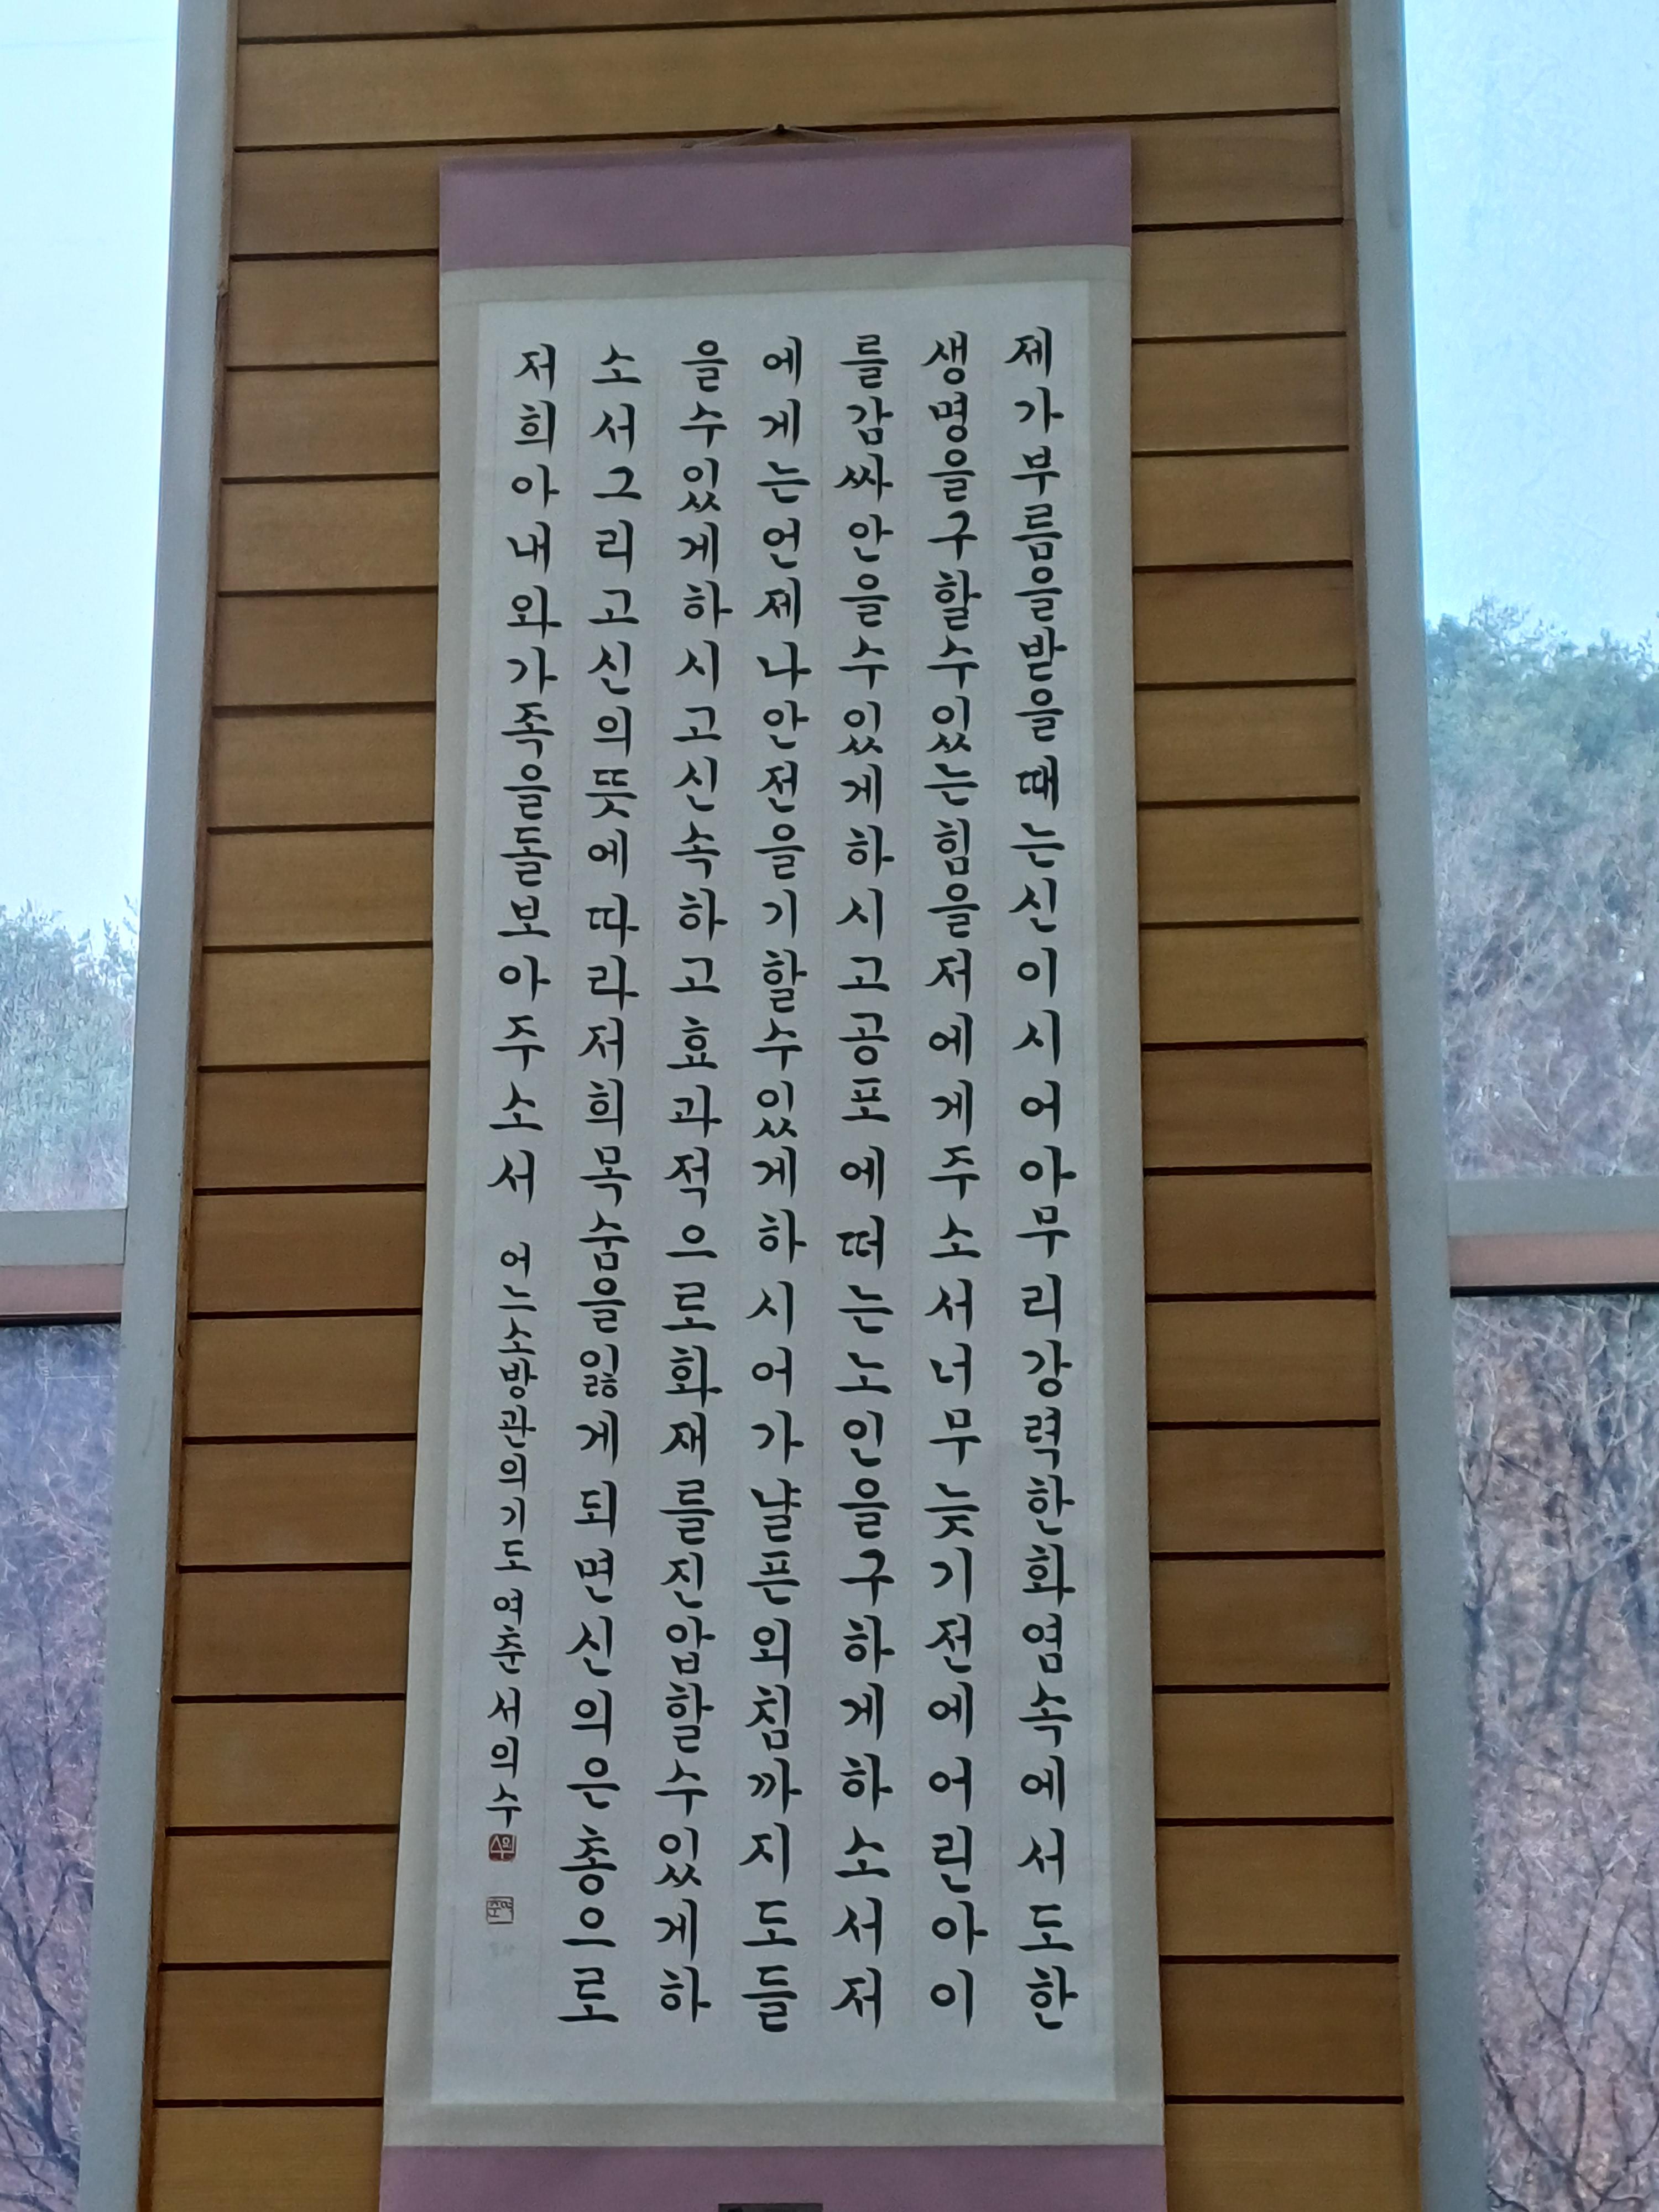 제가부름을받을때는신이시어아무리강력한화염속에서도한
생명을구할수있는힘을저에게주소서너무늦기전에어린아이
를감싸안을수있게하시고공포에떠는노인을구하게하소서저
에게는언제나안전을기할수있게하시어가냘픈외침까지도들
을수있게하시고신속하고효과적으로화재를진압할수있게하
소서그리고신의뜻에따라저희목숨을잃게되면신의은총으로
저희아내와가족을돌보아주소서 어느소방관의기도 여춘 서의수